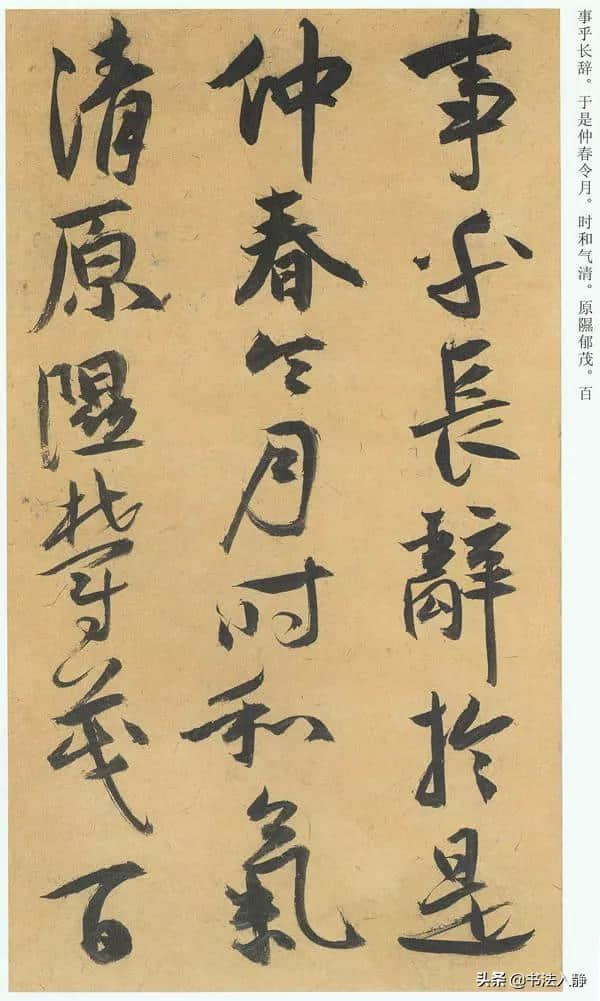 事乎长辞。于是仲春令月。时和气清。原隰郁茂。百
事乎長辭於是
仲春令月时和氣
清原隰鬱茂百
头条 @书法入静